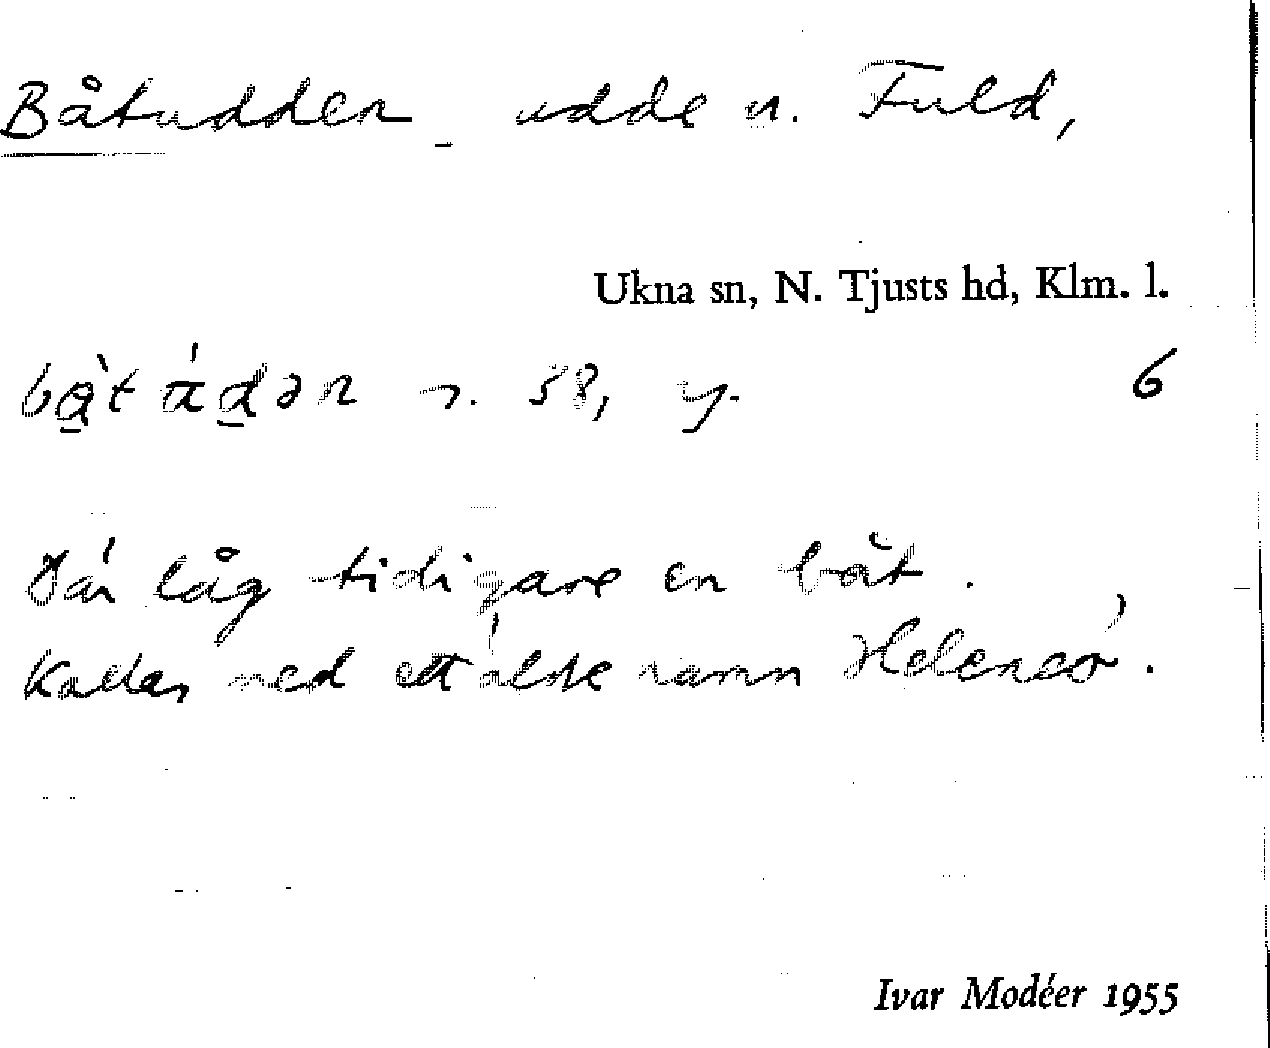 Båtudden udde n. Fuld,
Ukna sn, N. Tjusts hd, Klm. l.
6
Där låg tidigare en båt.
Kallas med ett äldre namn
Ivar Modéer 1955